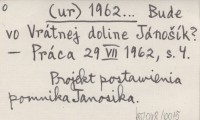 (ur) 1962... Bude
vo Vrátnej doline Jánošík?
– Práca 29 VII 1962, s. 4.
Projekt postavienia
pomníka Jánosíka.